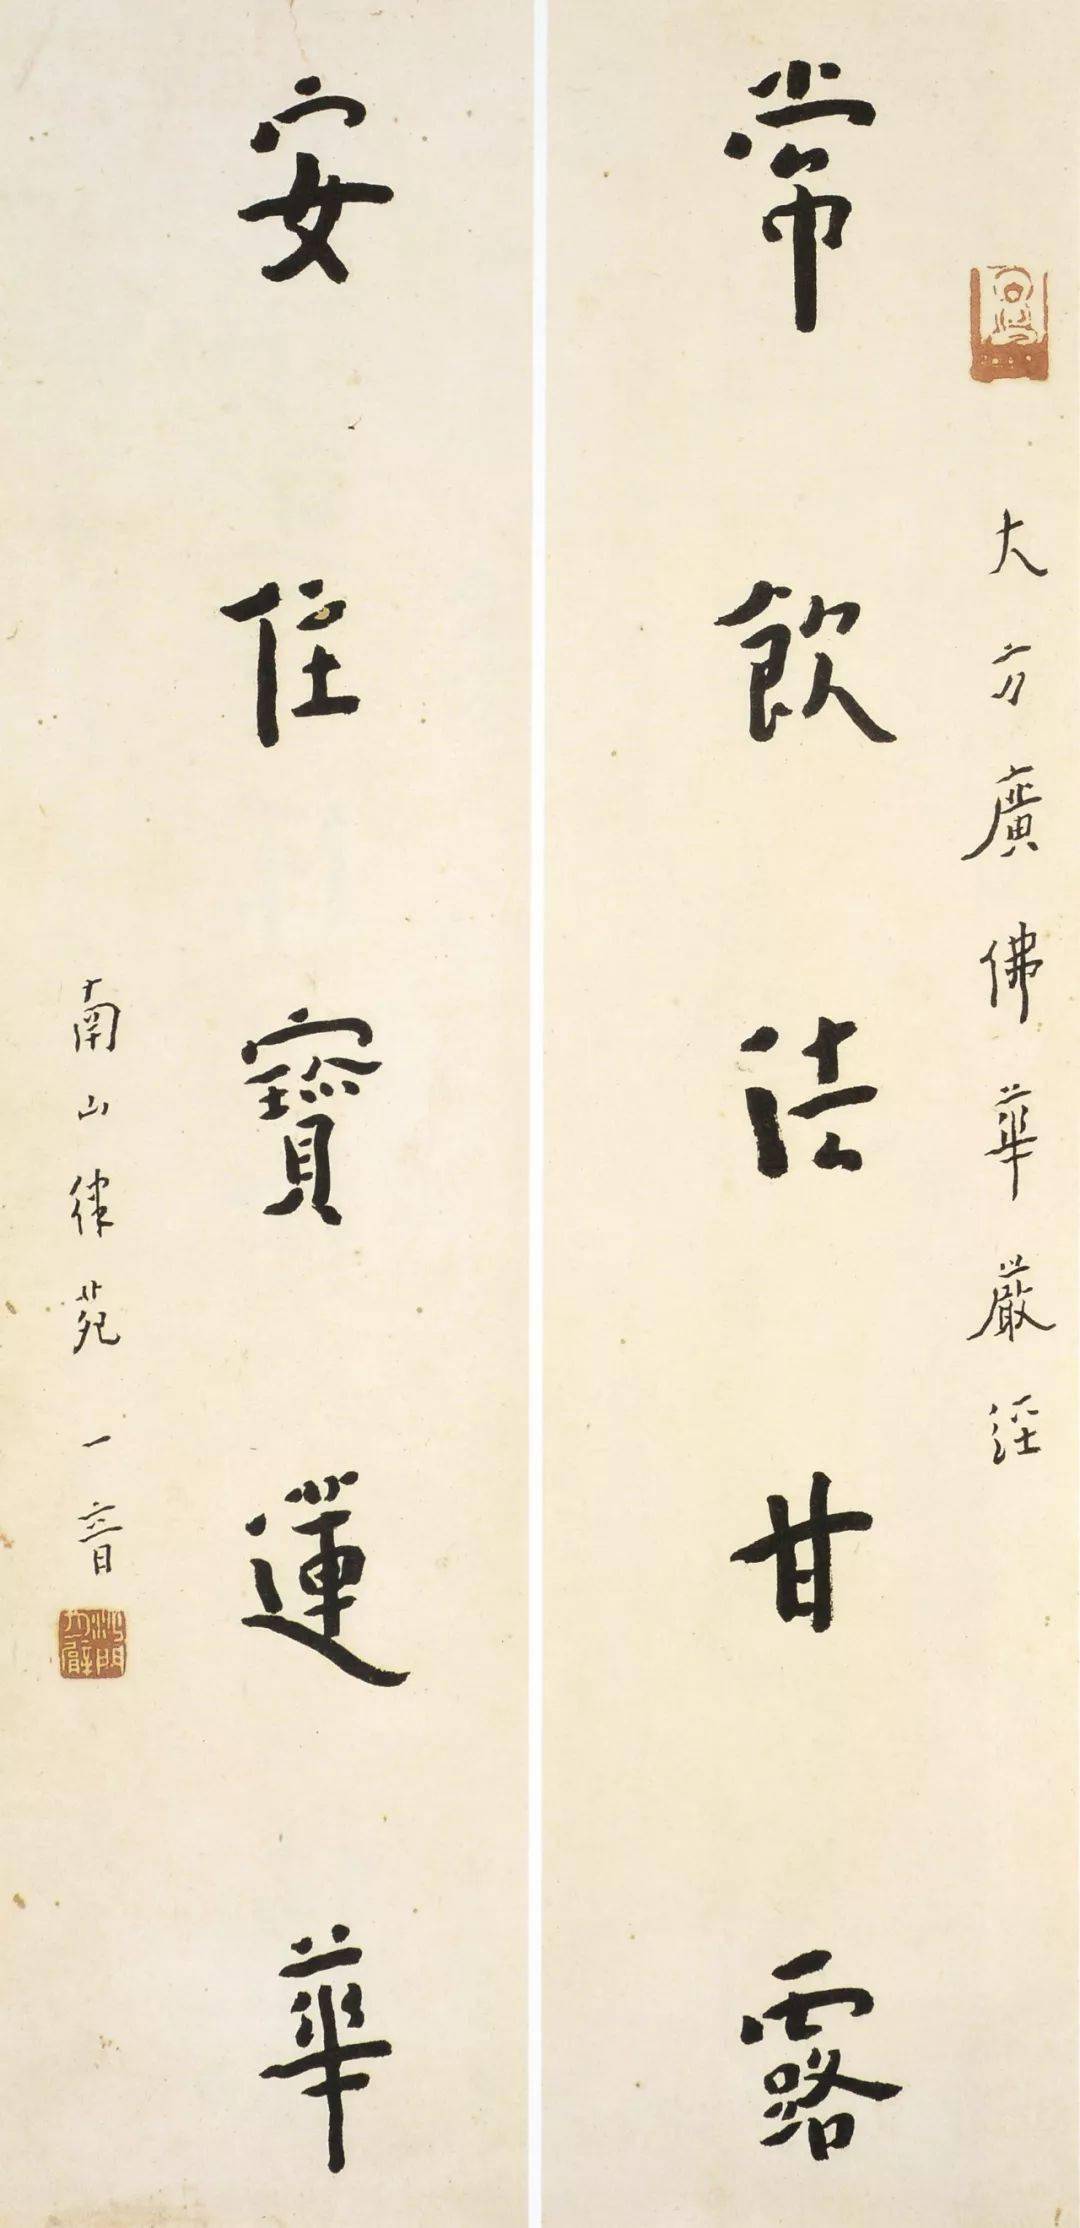 大方廣佛華嚴經
常飲法甘露
安住寶蓮華
南山律苑 一音
沙門